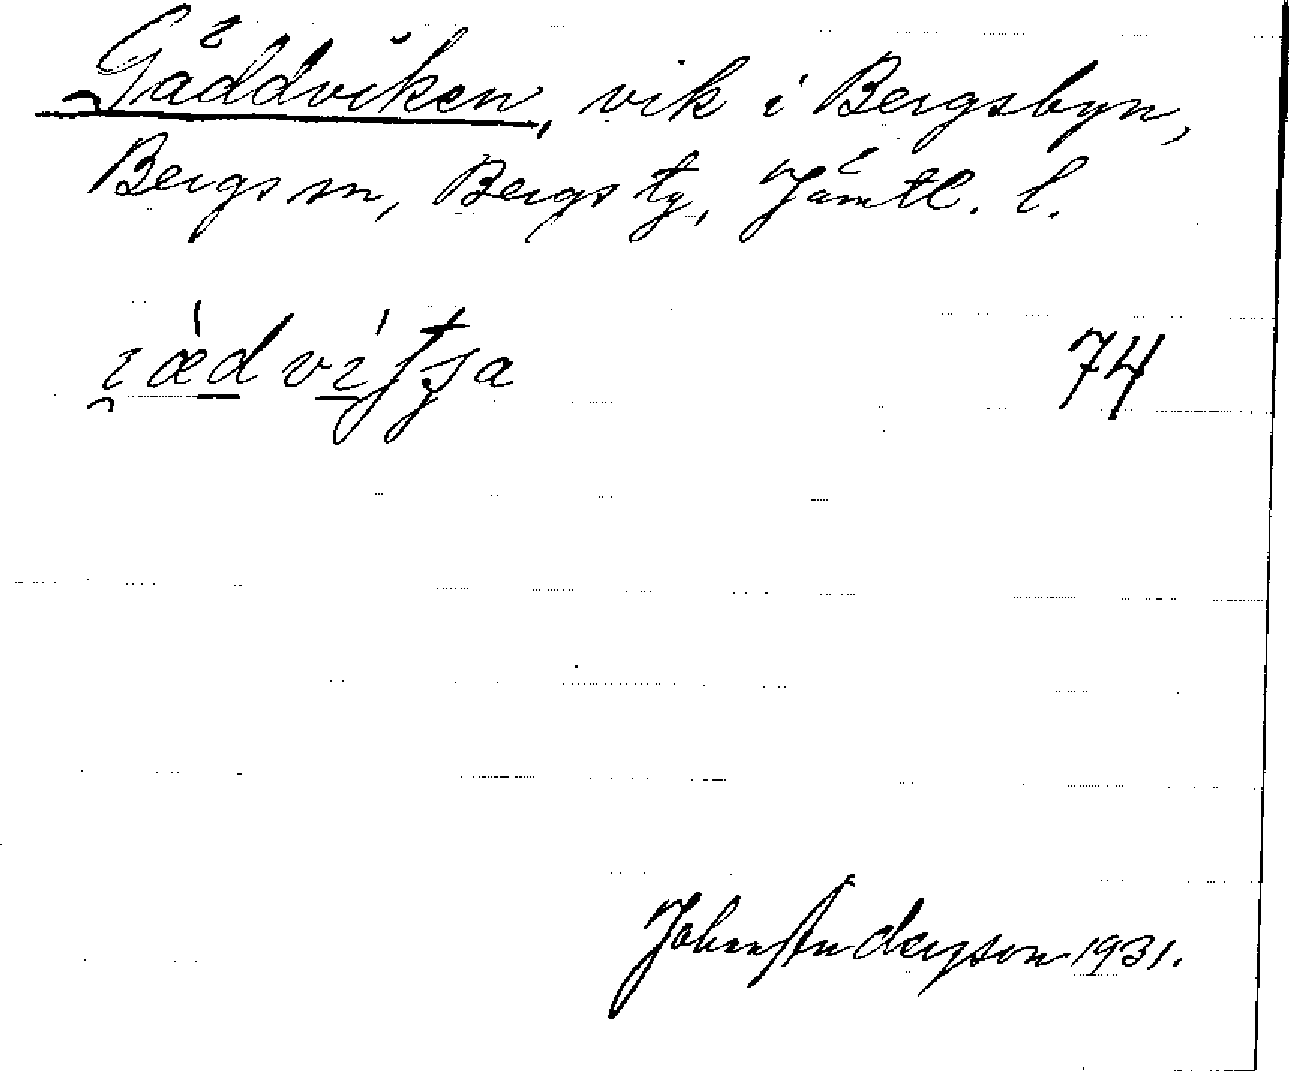 Gäddviken, vik i Bergsbyn,
Bergs sn, Bergs tg, Jämtl. l.
74
John Anderson 1931.